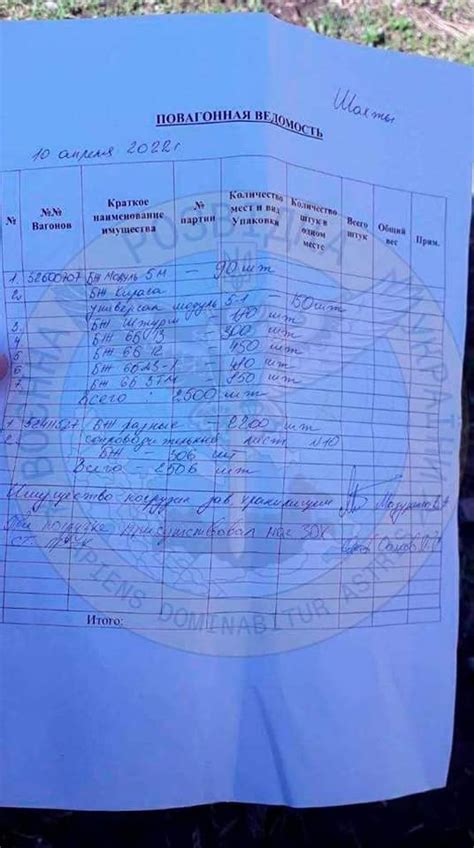 Шахты
ПОВАГОННАЯ ВЕДОМОСТЬ
10 апреля 2022г
№
№№ Вагонов
Краткое наименование имущества
№ партии
Количество мест и вид Упаковка
Количество штук в одном месте
Всего штук
Общий вес
Прим.
1. 52600707 БЖ Модуль 5М — 90 шт
2. БЖ Кираса
универсал модуль 5-1 — 50 шт
3 БЖ Штурм —
4 БЖ 6Б13 — 300 шт
5 БЖ 6Б12 — 450 шт
6 БЖ 6Б23-1 —
7 БЖ 6Б 5ТМ —
Всего : 2500 шт
1 БЖ разные — 2200 шт
2. сопроводительный лист №10
БЖ — 306 шт
Всего — 2506 шт
Имущество погрузил зав хранилищем
При погрузке присутствовал нач
Итого:
ВОЄННА РОЗВІДКА УКРАЇНИ
SAPIENS DOMINABITUR ASTRIS